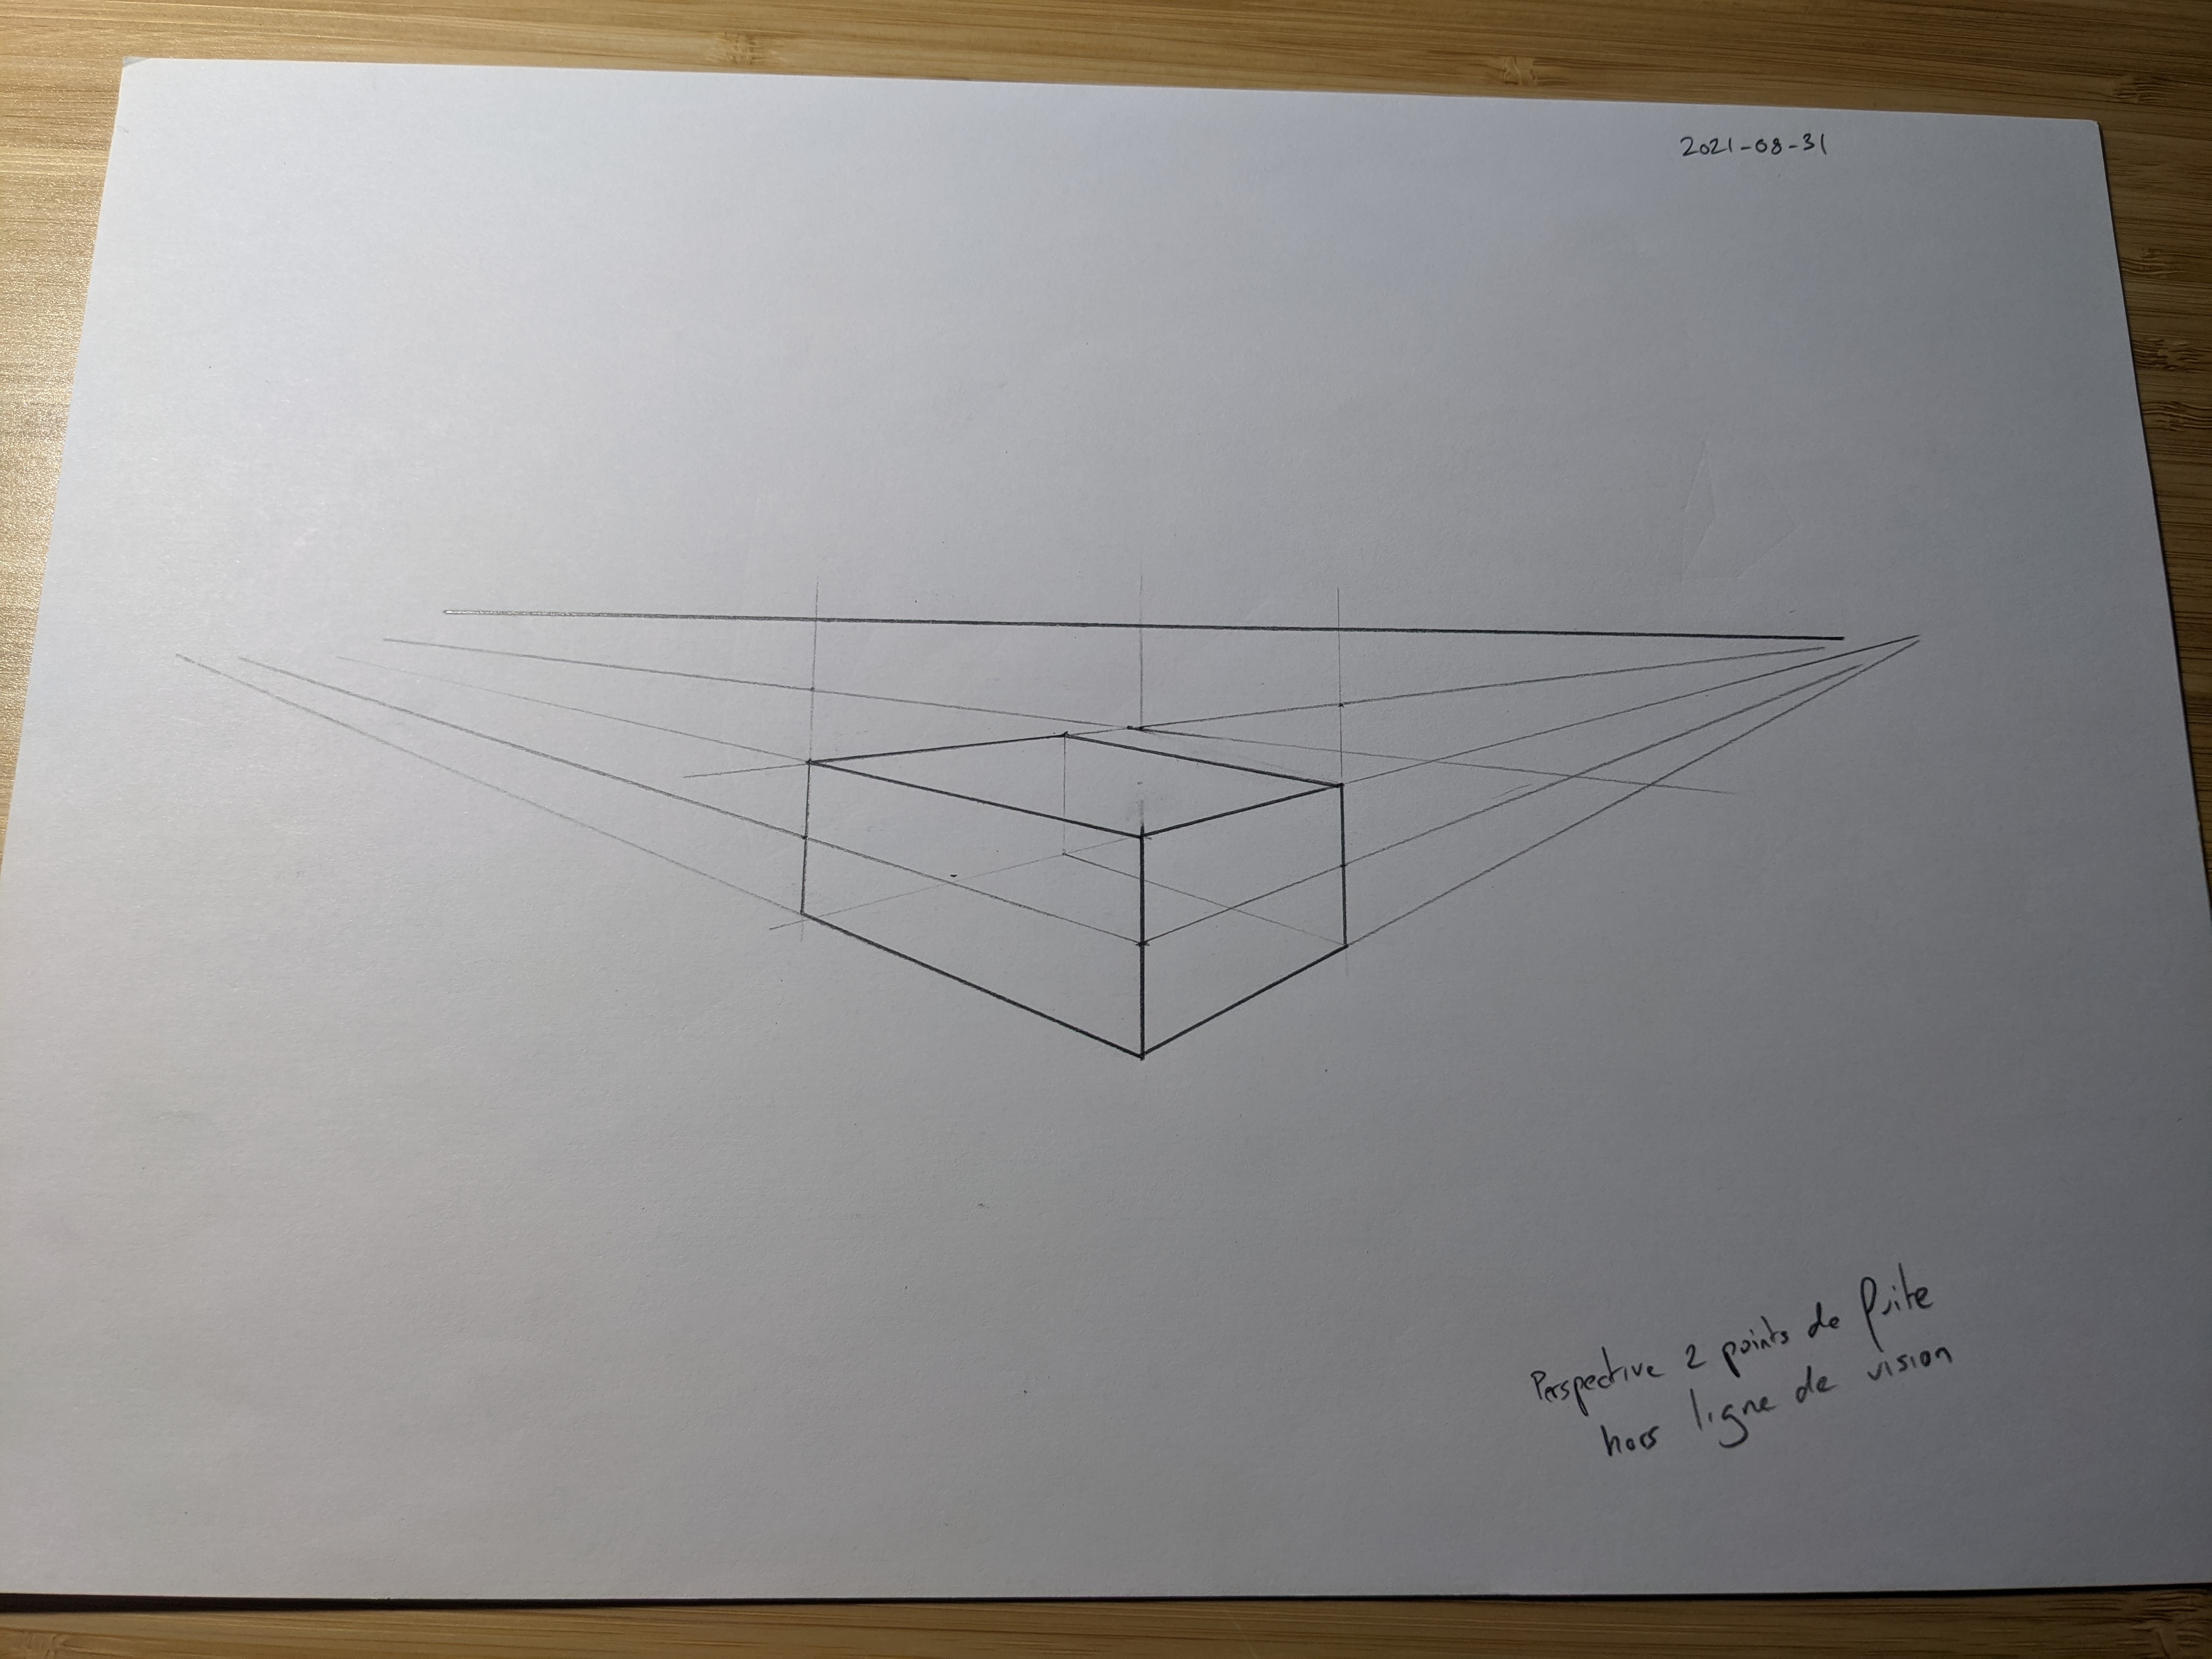 2021-08-31
Perspective 2 points de fuite
hors ligne de vision